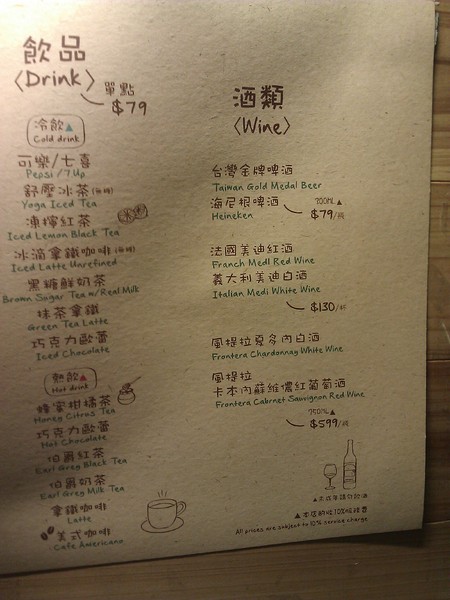 飲品
〈Drink〉
單點
$79
冷飲▲
Cold drink
可樂/七喜
Pepsi / 7 Up
舒壓冰茶
Yoga Iced Tea
凍檸紅茶
Iced Lemon Black Tea
冰滴拿鐵咖啡
Iced Latte Unrefined
黑糖鮮奶茶
Brown Sugar Tea w/Real Milk
抹茶拿鐵
Green Tea Latte
巧克力歐蕾
Iced Chocolate
熱飲▲
Hot drink
蜂蜜柑橘茶
Honey Citrus Tea
巧克力歐蕾
Hot Chocolate
伯爵紅茶
Earl Grey Black Tea
伯爵奶茶
Earl Grey Milk Tea
拿鐵咖啡
Latte
美式咖啡
Cafe Americano
酒類
〈Wine〉
台灣金牌啤酒
Taiwan Gold Medal Beer
海尼根啤酒
Heineken
$79/瓶
法國美迪紅酒
Franch Medi Red Wine
義大利美迪白酒
Italian Medi White Wine
$130/杯
風提拉夏多內白酒
Frontera Chardonnay White Wine
風提拉
卡本內蘇維儂紅葡萄酒
Frontera Cabrnet Sauvignon Red Wine
750ML▲
$599/瓶
▲未成年請勿飲酒
▲本店酌收10%服務費
All prices are subject to 10% service charge